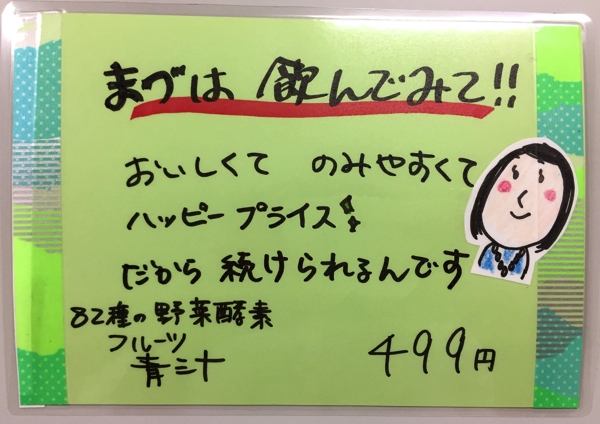 まづは 飲んでみて!!
おいしくて のみやすくて
ハッピープライス
だから 続けられるんです
82種の野菜酵素
フルーツ
青汁
499円